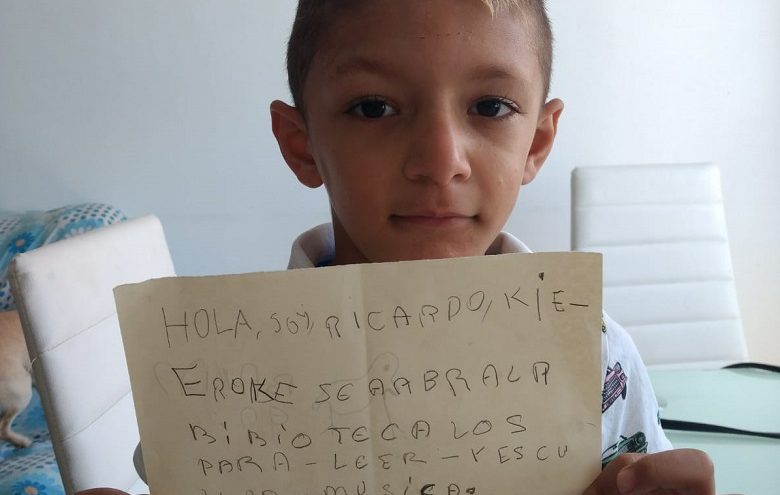 HOLA, SOY, RICARDO, KIE-
EROKE SEAABRALA
BIBIOTECA LOS
PARA - LEER - Y ESCU
MUSICA.